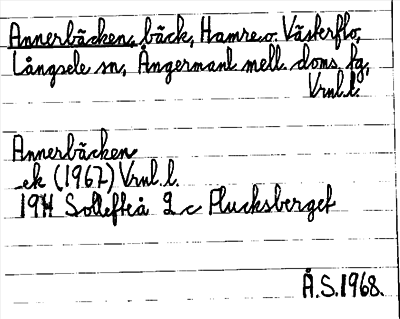 Annerbäcken, bäck, Hamre o. Västerflo,
Långsele sn, Ångermanl. mell. doms. fg,
Vrnl.l.
Annerbäcken
ek (1967) Vrnl.l.
19H Sollefteå 2 c Flucksberget
Å.S.1968.